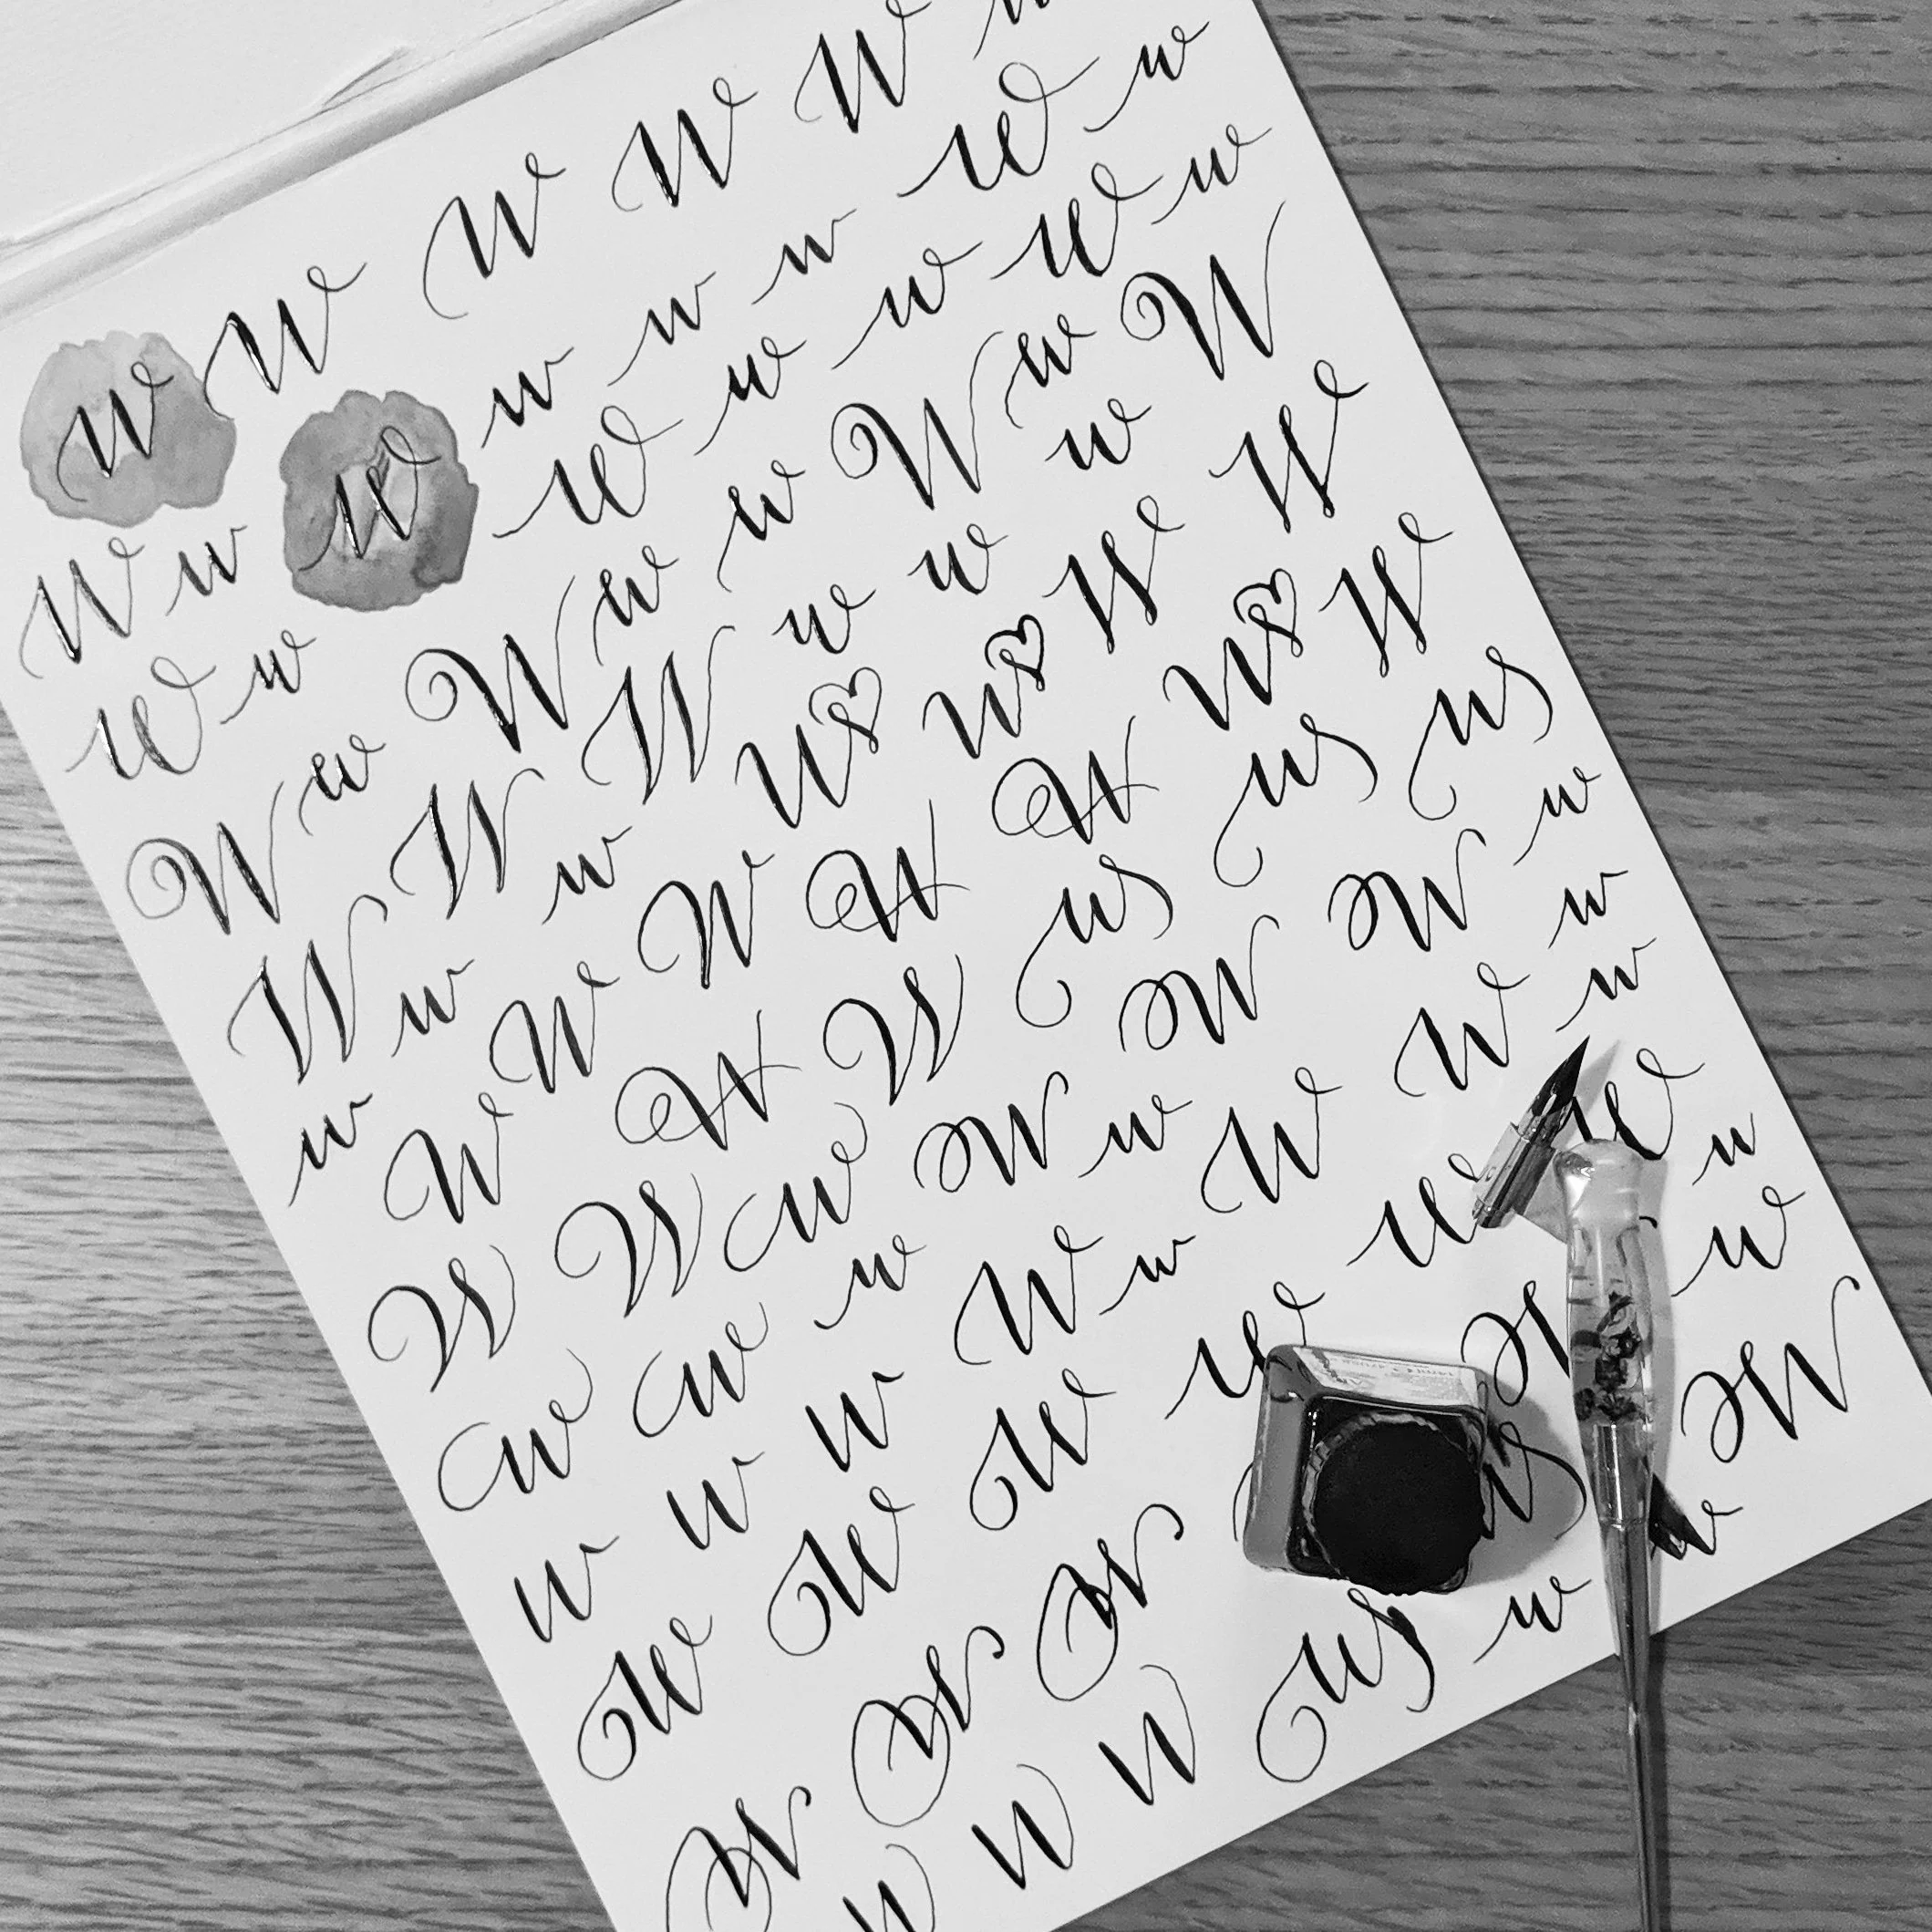 W W W W W w
W w W w w w W w
W w W w w W w
W w W w w W w W
W W W w w w
w w W♡ W♡ W W
w W W W W W W♡ W
W W w w w
W W W W W W w
W W w w W W w w
w w w W w
W W W W W W w
W W W W w
W W W W w w W